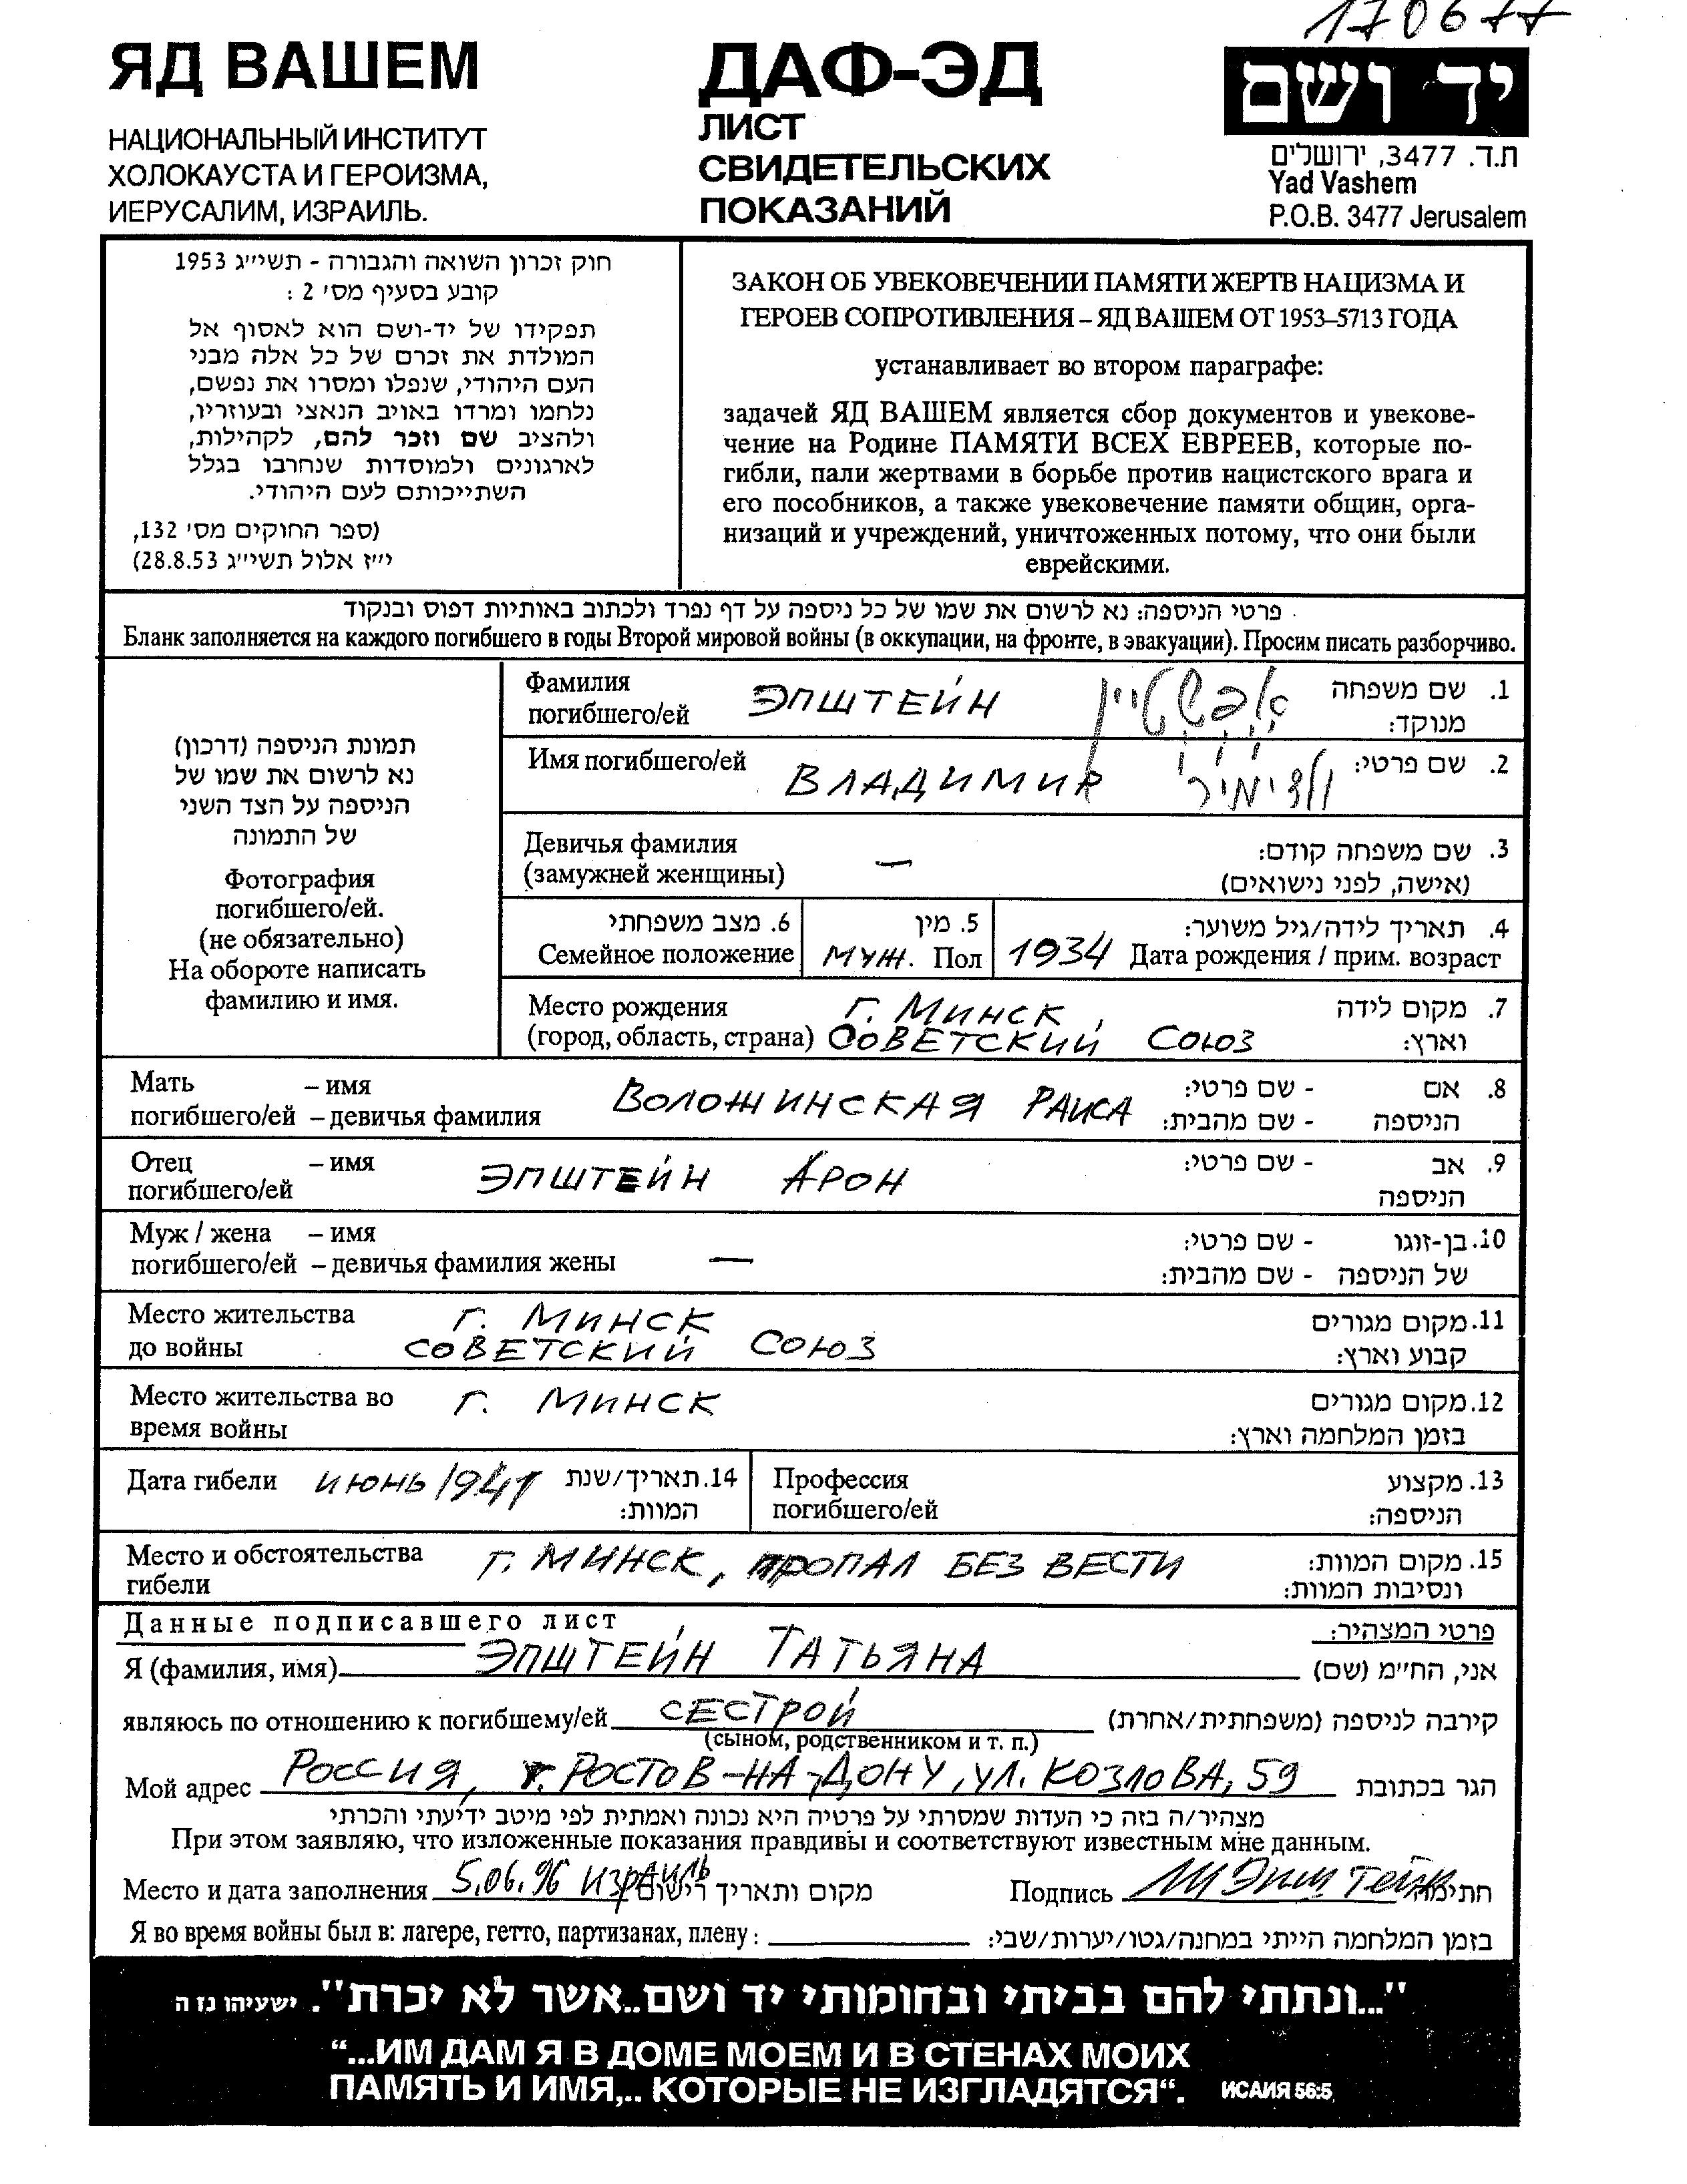 170677
ЯД ВАШЕМ
НАЦИОНАЛЬНЫЙ ИНСТИТУТ
ХОЛОКАУСТА И ГЕРОИЗМА,
ИЕРУСАЛИМ, ИЗРАИЛЬ.
ДАФ-ЭД
ЛИСТ
СВИДЕТЕЛЬСКИХ
ПОКАЗАНИЙ
יד ושם
ת.ד. 3477, ירושלים
Yad Vashem
P.O.B. 3477 Jerusalem
חוק זכרון השואה והגבורה - תשי״ג 1953
קובע בסעיף מס׳ 2 :
תפקידו של יד-ושם הוא לאסוף אל
המולדת את זכרם של כל אלה מבני
העם היהודי, שנפלו ומסרו את נפשם,
נלחמו ומרדו באויב הנאצי ובעוזריו,
ולהציב שם וזכר להם, לקהילות,
לארגונים ולמוסדות שנחרבו בגלל
השתייכותם לעם היהודי.
(ספר החוקים מס׳ 132,
י״ז אלול תשי״ג 28.8.53)
ЗАКОН ОБ УВЕКОВЕЧЕНИИ ПАМЯТИ ЖЕРТВ НАЦИЗМА И
ГЕРОЕВ СОПРОТИВЛЕНИЯ – ЯД ВАШЕМ ОТ 1953–5713 ГОДА
устанавливает во втором параграфе:
задачей ЯД ВАШЕМ является сбор документов и увекове-
чение на Родине ПАМЯТИ ВСЕХ ЕВРЕЕВ, которые по-
гибли, пали жертвами в борьбе против нацистского врага и
его пособников, а также увековечение памяти общин, орга-
низаций и учреждений, уничтоженных потому, что они были
еврейскими.
פרטי הניספה: נא לרשום את שמו של כל ניספה על דף נפרד ולכתוב באותיות דפוס ובנקוד
Бланк заполняется на каждого погибшего в годы Второй мировой войны (в оккупации, на фронте, в эвакуации). Просим писать разборчиво.
תמונת הניספה (דרכון)
נא לרשום את שמו של
הניספה על הצד השני
של התמונה
Фотография
погибшего/ей.
(не обязательно)
На обороте написать
фамилию и имя.
Фамилия ЭПШТЕЙН אפשטיין 1. שם משפחה
погибшего/ей מנוקד:
Имя погибшего/ей ВЛАДИМИР ולדימיר 2. שם פרטי:
Девичья фамилия — 3. שם משפחה קודם:
(замужней женщины) (אישה, לפני נישואים)
6. מצב משפחתי 5. מין 4. תאריך לידה/גיל משוער:
Семейное положение МУЖ. Пол 1934 Дата рождения / прим. возраст
Место рождения Г. МИНСК, 7. מקום לידה
(город, область, страна) СОВЕТСКИЙ СОЮЗ וארץ:
Мать – имя ВОЛОЖИНСКАЯ РАИСА 8. אם - שם פרטי:
погибшего/ей – девичья фамилия הניספה - שם מהבית:
Отец – имя ЭПШТЕЙН АРОН 9. אב - שם פרטי:
погибшего/ей הניספה
Муж / жена – имя 10. בן-זוגו - שם פרטי:
погибшего/ей – девичья фамилия жены — של הניספה - שם מהבית:
Место жительства Г. МИНСК 11. מקום מגורים
до войны СОВЕТСКИЙ СОЮЗ קבוע וארץ:
Место жительства во Г. МИНСК 12. מקום מגורים
время войны בזמן המלחמה וארץ:
Дата гибели ИЮНЬ 1941 14. תאריך/שנת Профессия 13. מקצוע
המוות: погибшего/ей הניספה:
Место и обстоятельства Г. МИНСК, ПРОПАЛ БЕЗ ВЕСТИ 15. מקום המוות:
гибели ונסיבות המוות:
Данные подписавшего лист פרטי המצהיר:
Я (фамилия, имя) ЭПШТЕЙН ТАТЬЯНА אני, הח״מ (שם)
являюсь по отношению к погибшему/ей СЕСТРОЙ קירבה לניספה (משפחתית/אחרת)
(сыном, родственником и т. п.)
Мой адрес РОССИЯ, г. РОСТОВ-НА-ДОНУ, УЛ. КОЗЛОВА, 59 הגר בכתובת
מצהיר/ה בזה כי העדות שמסרתי על פרטיה היא נכונה ואמתית לפי מיטב ידיעתי והכרתי
При этом заявляю, что изложенные показания правдивы и соответствуют известным мне данным.
Место и дата заполнения 5.06.96 ИЗРАИЛЬ מקום ותאריך רישום Подпись Эпштейн חתימה
Я во время войны был в: лагере, гетто, партизанах, плену : בזמן המלחמה הייתי במחנה/גטו/יערות/שבי:
"...ונתתי להם בביתי ובחומותי יד ושם..אשר לא יכרת". ישעיהו נז ה
“...ИМ ДАМ Я В ДОМЕ МОЕМ И В СТЕНАХ МОИХ
ПАМЯТЬ И ИМЯ,.. КОТОРЫЕ НЕ ИЗГЛАДЯТСЯ“. ИСАИЯ 56:5